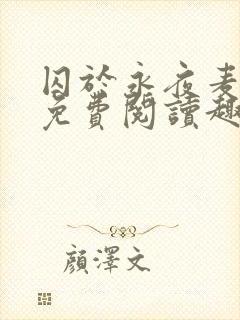 囚於永夜麦
免費閱讀趣
顏澤文